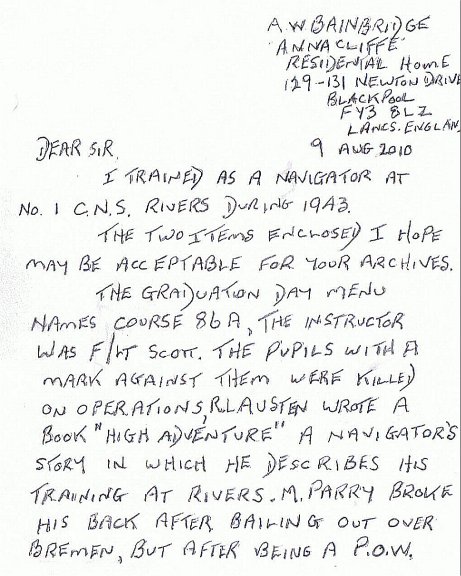 A W BAINBRIDGE
ANNACLIFFE
RESIDENTIAL HOME
129-131 NEWTON DRIVE
BLACKPOOL
FY3 8LZ
LANCS. ENGLAN
DEAR SIR, 9 AUG 2010
I TRAINED AS A NAVIGATOR AT
No. 1 C.N.S. RIVERS DURING 1943.
THE TWO ITEMS ENCLOSED I HOPE
MAY BE ACCEPTABLE FOR YOUR ARCHIVES.
THE GRADUATION DAY MENU
NAMES COURSE 86A, THE INSTRUCTOR
WAS F/LT SCOTT. THE PUPILS WITH A
MARK AGAINST THEM WERE KILLED
ON OPERATIONS, R.L AUSTEN WROTE A
BOOK "HIGH ADVENTURE" A NAVIGATOR'S
STORY IN WHICH HE DESCRIBES HIS
TRAINING AT RIVERS. M. PARRY BROKE
HIS BACK AFTER BAILING OUT OVER
BREMEN, BUT AFTER BEING A P.O.W.